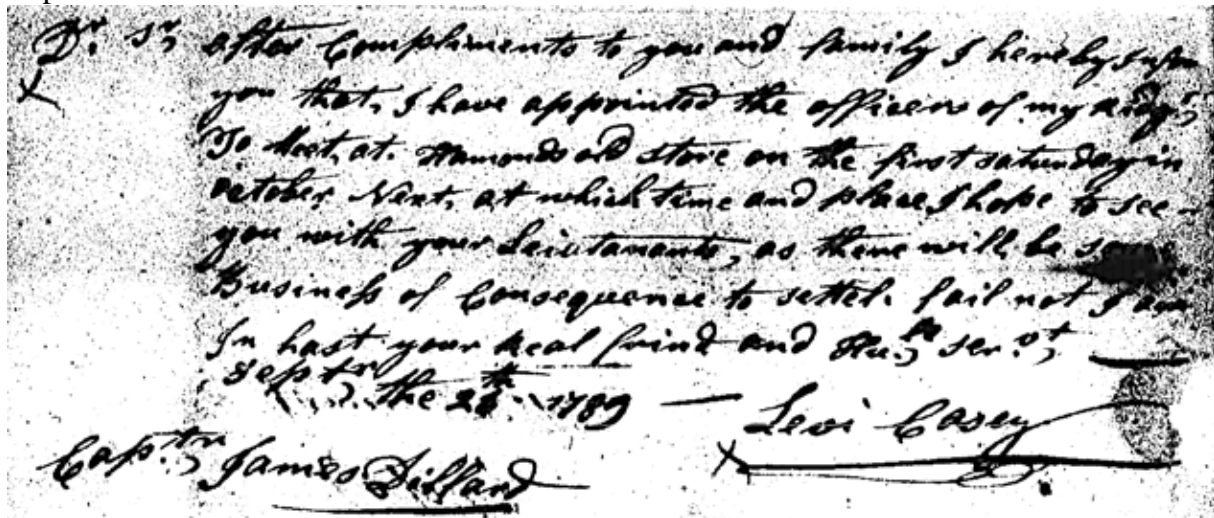 Dr. Sr, after Compliments to you and family I hereby Inform
you that, I have appointed the officers of my Ridgt,
To Meet, at. Hamonds old store on the first saturday in
october Next, at which time and place I hope to see –
you with your Leiutanants, as there will, be some
Business of Consequence to settel. fail not I am
In hast your Real frind and Hu,le Ser.vt,
Septr, the 26th. 1789 —
Levi Casey
Captn, James Dillard